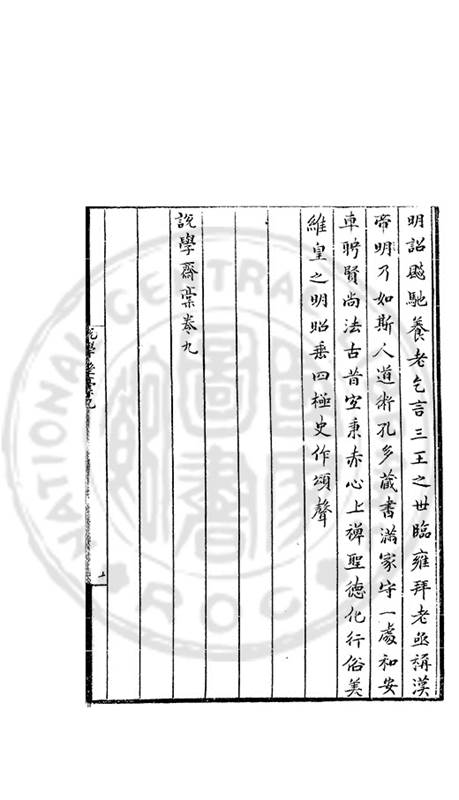 明詔颷馳養老乞言三王之世臨雍拜老亟稱漢
帝明乃如斯人道術孔多藏書滿家守一處和安
車聘賢尚法古昔空秉赤心上裨聖德化行俗美
維皇之明昭垂四極史作頌聲
說學齋稾卷九